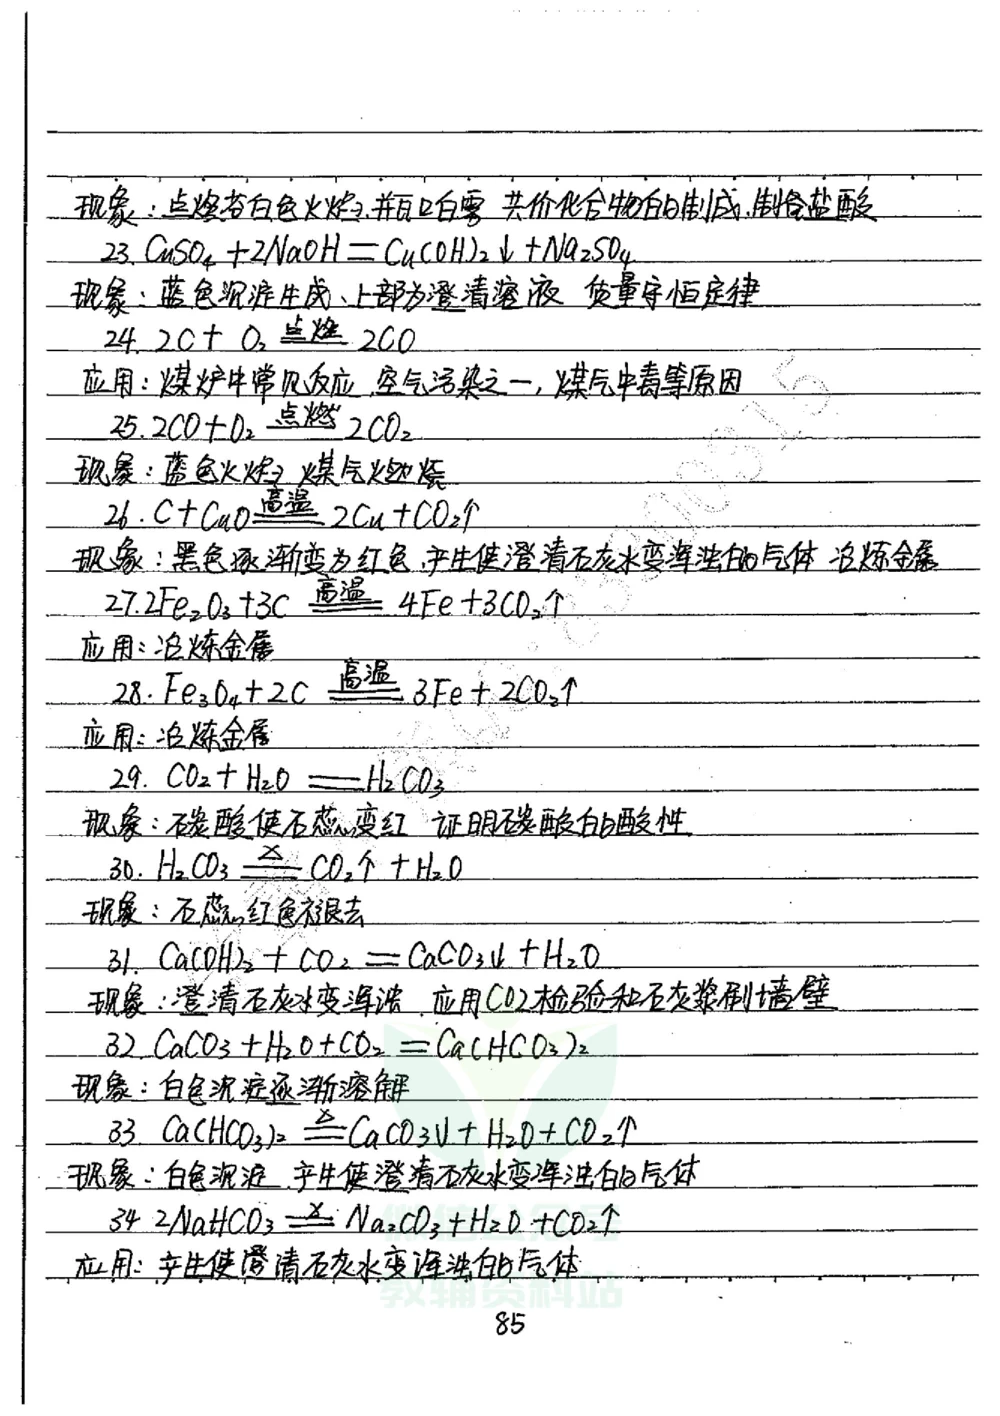 现象：点燃苍白色火焰、并瓶口白雾 共价化合物的制成、制备盐酸
23. CuSO₄+2NaOH=Cu(OH)₂↓+Na₂SO₄
现象：蓝色沉淀生成、上部为澄清溶液 质量守恒定律
24. 2C+O₂ 点燃 2CO
应用：煤炉中常见反应、空气污染之一，煤气中毒等原因
25. 2CO+O₂ 点燃 2CO₂
现象：蓝色火焰 煤气燃烧
26. C+CuO 高温 2Cu+CO₂↑
现象：黑色逐渐变为红色、产生使澄清石灰水变浑浊的气体 冶炼金属
27. 2Fe₂O₃+3C 高温 4Fe+3CO₂↑
应用：冶炼金属
28. Fe₃O₄+2C 高温 3Fe+2CO₂↑
应用：冶炼金属
29. CO₂+H₂O=H₂CO₃
现象：碳酸使石蕊变红 证明碳酸的酸性
30. H₂CO₃ △ CO₂↑+H₂O
现象：石蕊红色褪去
31. Ca(OH)₂+CO₂=CaCO₃↓+H₂O
现象：澄清石灰水变浑浊、应用CO₂检验和石灰浆刷墙壁
32. CaCO₃+H₂O+CO₂=Ca(HCO₃)₂
现象：白色沉淀逐渐溶解
33. Ca(HCO₃)₂ △ CaCO₃↓+H₂O+CO₂↑
现象：白色沉淀、产生使澄清石灰水变浑浊的气体
34 2NaHCO₃ △ Na₂CO₃+H₂O+CO₂↑
应用：产生使澄清石灰水变浑浊的气体
教辅资料站
85